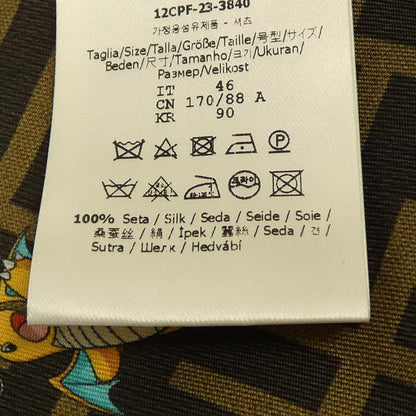 12CPF-23-3840
가정용섬유제품 - 셔츠
Taglia/Size/Talla/Größe/Taille/号型/サイズ/
Beden/尺寸/Tamanho/크기/Ukuran/
Размер/Velikost
IT 46
CN 170/88 A
KR 90
P
드라이
100% Seta / Silk / Seda / Seide / Soie /
桑蚕丝 / 絹 / İpek / 蠶絲 / Seda / 견 /
Sutra / Шелк / Hedvábí